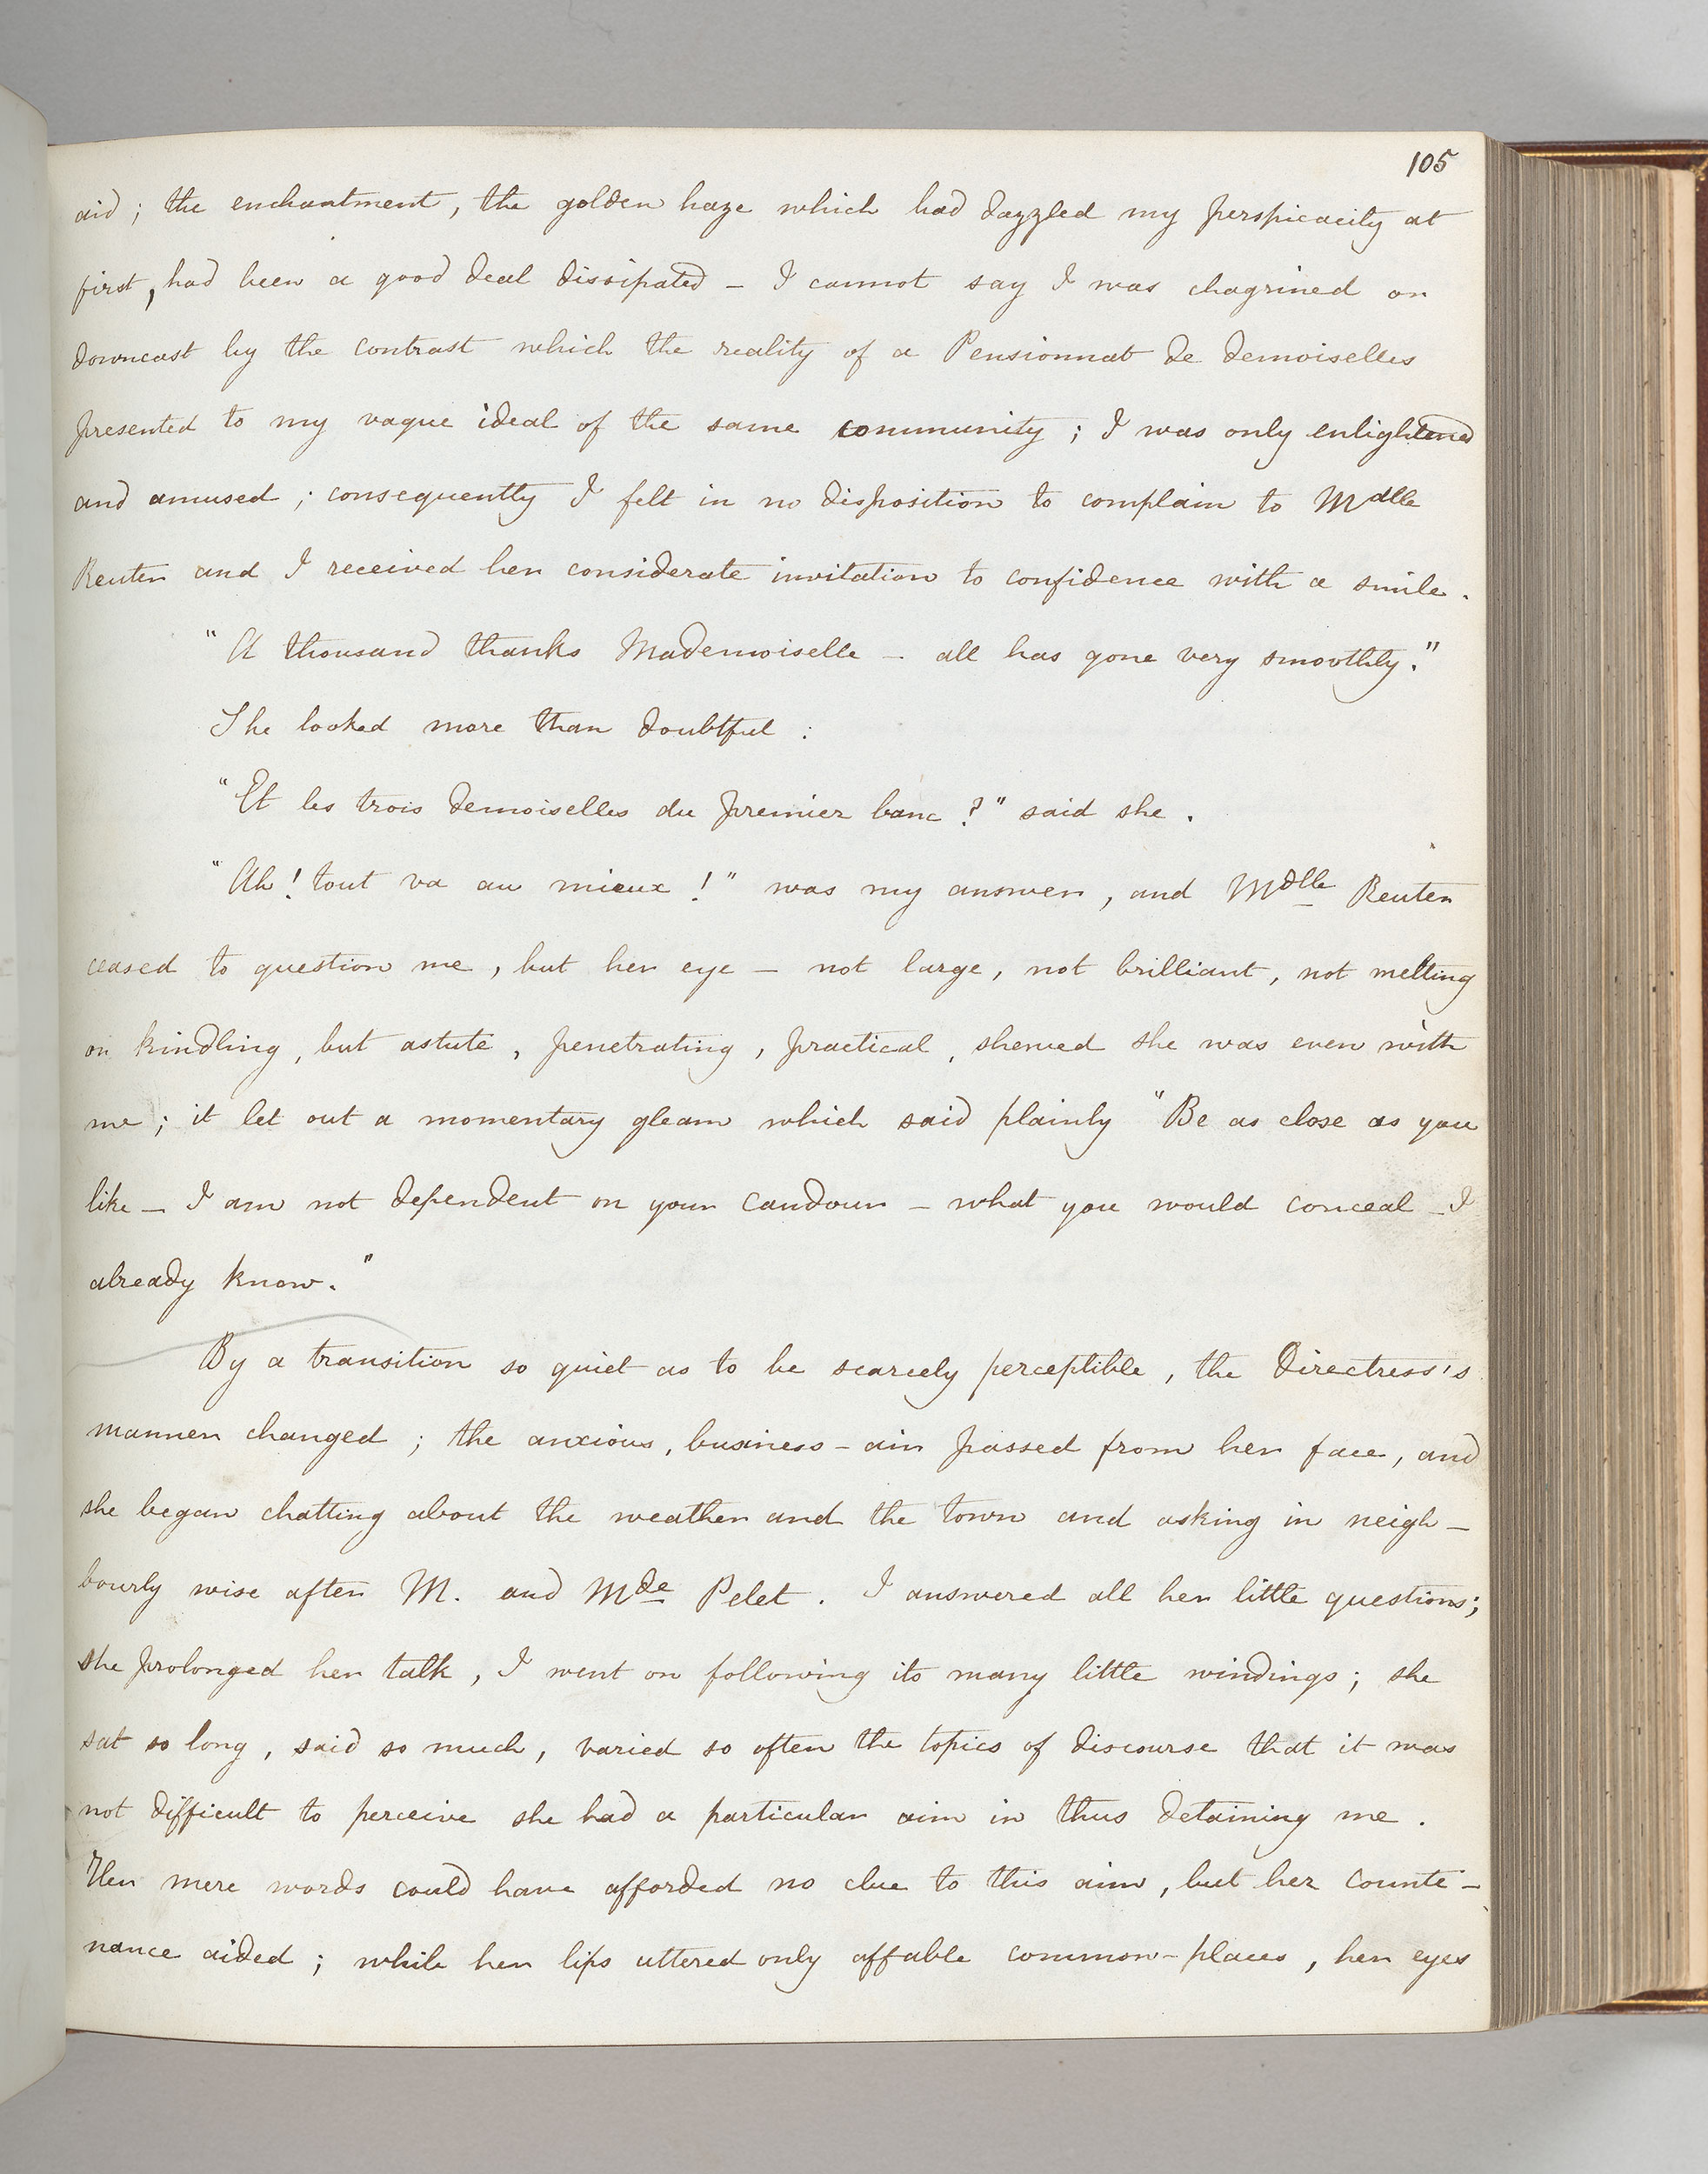 105
aid ; the enchantment , the golden haze which had dazzled my perspicacity at
first , had been a good deal dissipated - I cannot say I was chagrined or
downcast by the contrast which the reality of a Pensionnat de demoiselles
presented to my vague ideal of the same community ; I was only enlightened
and amused ; consequently I felt in no disposition to complain to Mdlle
Reuter and I received her considerate invitation to confidence with a smile .
"A thousand thanks Mademoiselle - all has gone very smoothly."
She looked more than doubtful :
"Et les trois demoiselles du premier banc ?" said she .
"Ah ! tout va au mieux !" was my answer , and Mdlle Reuter
ceased to question me , but her eye - not large , not brilliant , not melting
or kindling , but astute , penetrating , practical , shewed she was even with
me ; it let out a momentary gleam which said plainly "Be as close as you
like - I am not dependent on your candour - what you would conceal - I
already know."
By a transition so quiet as to be scarcely perceptible , the Directress's
manner changed ; the anxious , business - air passed from her face , and
she began chatting about the weather and the town and asking in neigh -
bourly wise after M. and Mde Pelet . I answered all her little questions ;
she prolonged her talk , I went on following its many little windings ; she
sat so long , said so much , varied so often the topics of discourse that it was
not difficult to perceive she had a particular aim in thus detaining me .
Her mere words could have afforded no clue to this aim , but her counte -
nance aided ; while her lips uttered only affable common-places , her eyes